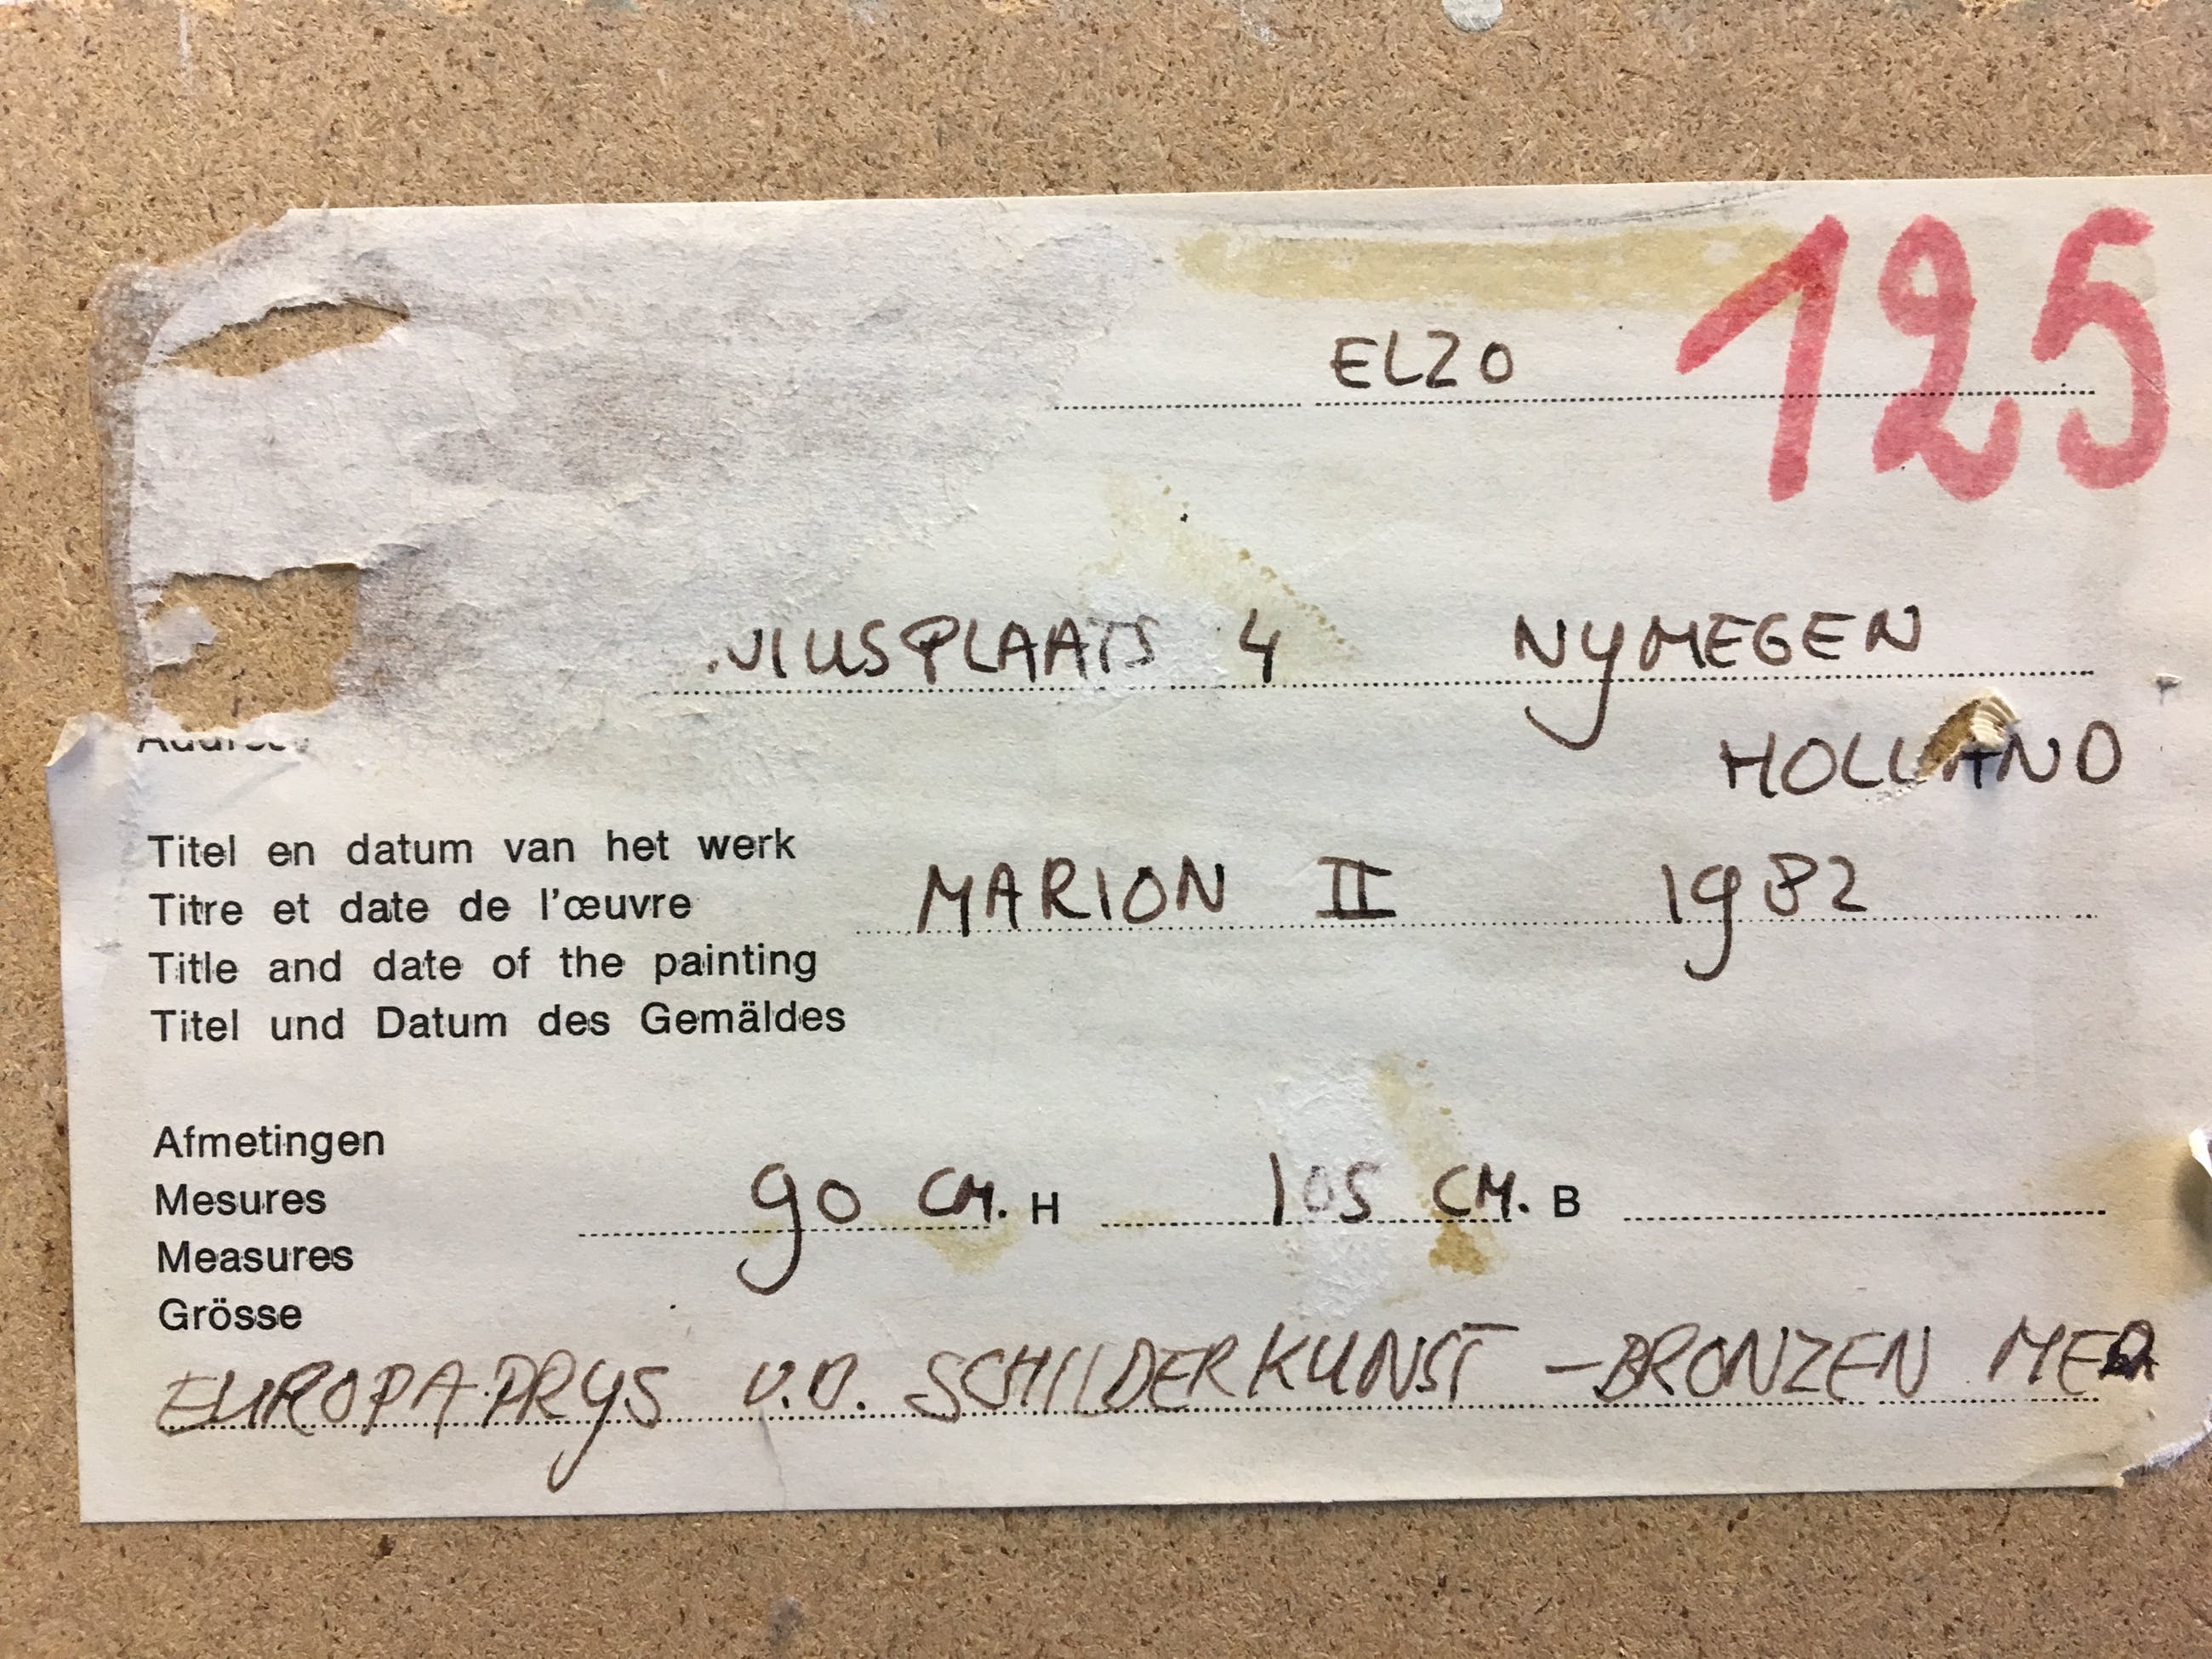 125
ELZO
NIUSPLAATS 4 NYMEGEN
HOLLAND
Titel en datum van het werk
Titre et date de l'œuvre MARION II 1982
Title and date of the painting
Titel und Datum des Gemäldes
Afmetingen
Mesures 90 CM. H 105 CM. B
Measures
Grösse
EUROPA PRYS V.D. SCHILDERKUNST - BRONZEN MED